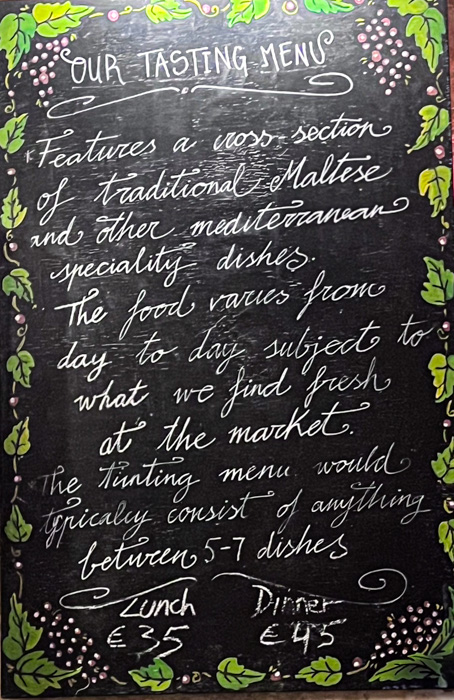 OUR TASTING MENU
Features a cross-section
of traditional Maltese
and other mediterranean
speciality dishes.
The food varies from
day to day subject to
what we find fresh
at the market.
The tinting menu would
typicaley consist of anything
between 5-7 dishes
Lunch Dinner
€35 €45